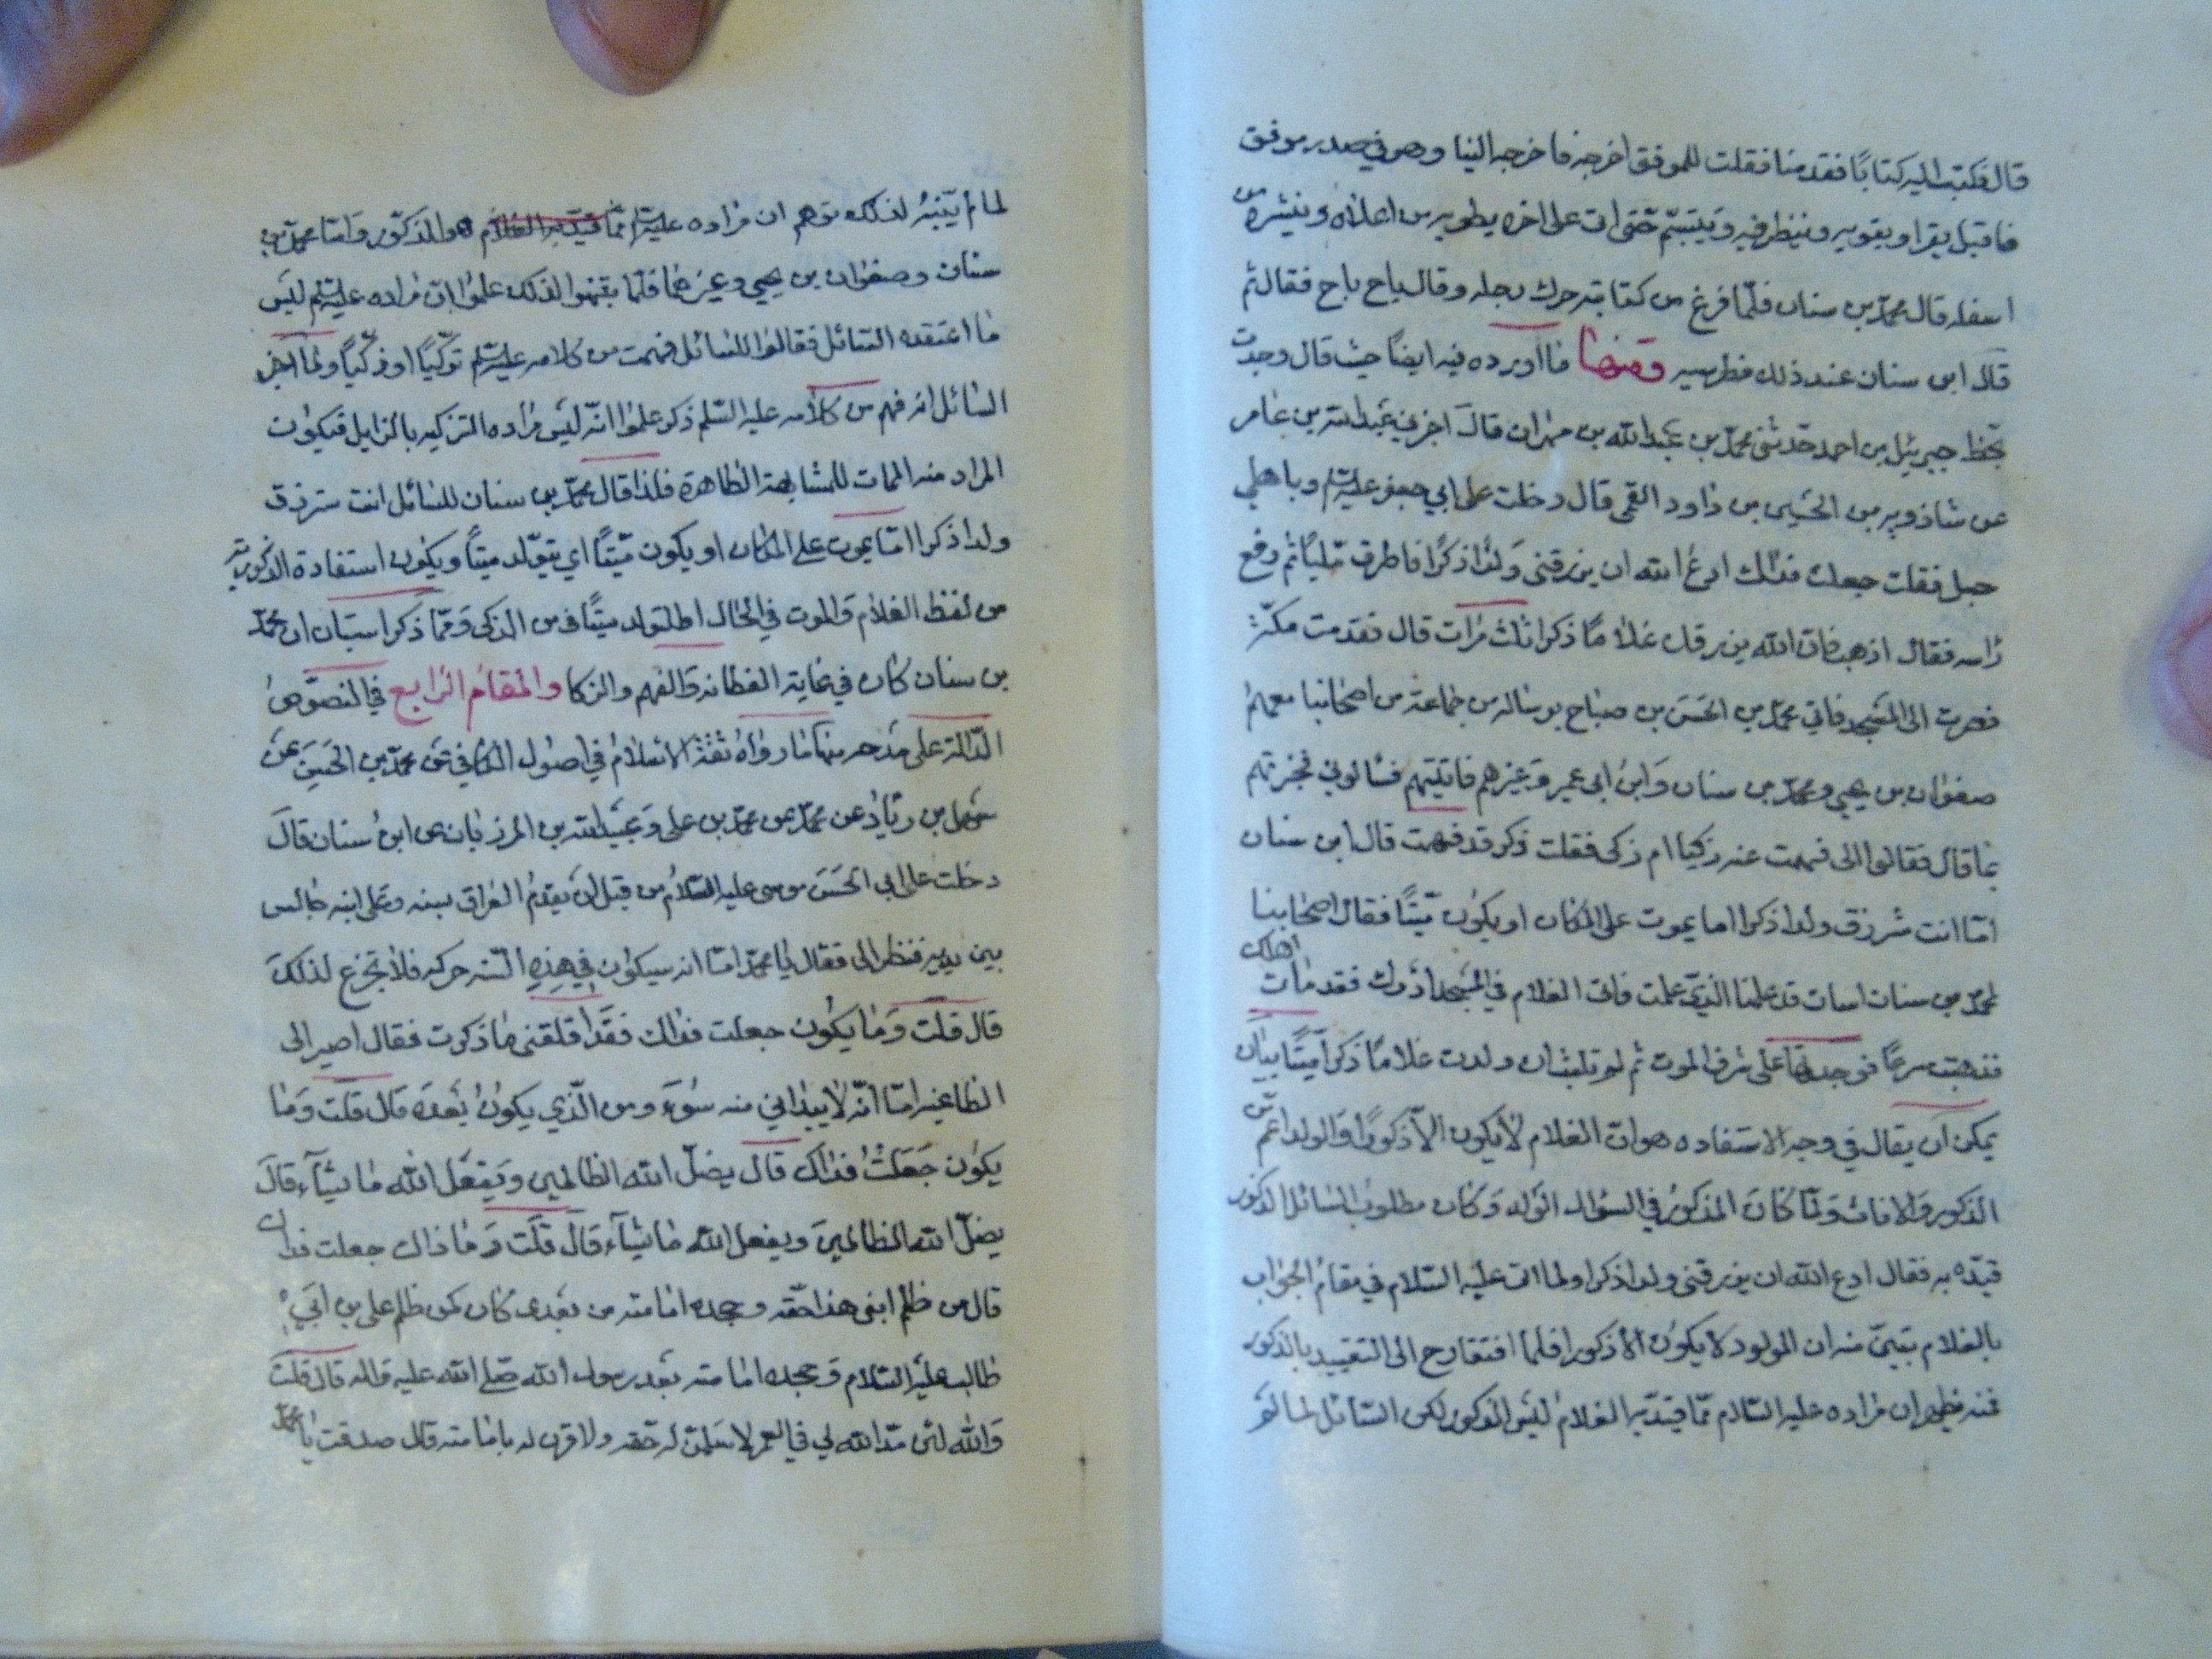 قال فكتب اليه كتابًا فقدمنا فقلت للموفق اخرجه فاخرجه الينا وهو في صدر موفق
فاقبل يقراه ويطويه وينظر فيه ويتبسم حتى اتى على اخره يطويه من اعلاه وينشره من
اسفله قال محمد بن سنان فلمّا فرغ من كتابته حرك رجله وقال باح باح فقال ثم
قال ابن سنان عند ذلك فطرسيه ومنها ما اورده فيه ايضًا حيث قال وجدت
بخط جبرئيل بن احمد حدثنى محمد بن عبد الله بن مهران قال اخبرني عبد الله بن عامر
عن شاذويه بن الحسين بن داود القمي قال دخلت على ابي جعفر عليه السلم وباهلي
حبل فقلت جعلت فداك ادع الله ان يرزقنى ولدًا ذكرًا فاطرق مليًا ثم رفع
راسه فقال اذهب فان الله يرزقك غلامًا ذكرا ثلث مرات قال فقدمت مكة
فصرت الى المسجد فاتى محمد بن الحسن بن صباح برسالة من جماعة من اصحابنا معهم
صفوان بن يحيى ومحمد بن سنان وابن ابي عمير وغيرهم فاتيتهم فسالوني فخبرتهم
بما قال فقالوا الى فهمت عنه زكيا ام ذكى فقلت ذكر قد فهمت قال ابن سنان
امّا انت سترزق ولدا ذكرا اما يموت على المكان او يكون ميّتًا فقال اصحابنا
لمحمد بن سنان اسات قد علمنا الذي علمت فاتى الغلام في المسجد ادرك فقد مات اهلك
فذهبت سرعًا فوجدتها على شرف الموت ثم لم تلبث ان ولدت غلامًا ذكرا ميّتًا بيان
يمكن ان يقال في وجه الاستفاده هو ان الغلام لا يكون الّا ذكورًا والولد اعم من
الذكور والاناث ولمّا كان المذكور في السؤال الولد وكان مطلوب السائل الذكور
قيّده به فقال ادع الله ان يرزقنى ولدا ذكرا ولما اتى عليه السّلام في مقام الجواب
بالغلام تبيّن منه ان المولود لا يكون الّا ذكورا فلما افتقارح الى التقييد بالذكور
فمنه يظهر ان مراده عليه السّلام ممّا قيّد به الغلام ليس الذكور لكن السائل لما لم
لما لم يتنبه لذلك توهم ان مراده عليه السلم ممّا قيّد به الغلام هو الذكور وامّا محمد بن
سنان وصفوان بن يحيى وغيرهما فلمّا تفهموا لذلك علموا ان مراده عليه السلم ليس
ما اعتقده السّائل فقالوا للسّائل فهمت من كلامه عليه السلم توكيًا او ذكيًا ولما اخبر
السّائل انه فهم من كلامه عليه السّلم ذكر علموا انّه ليس مراده التزكيه بالزايل فيكون
المراد منه الممات للمشابهة الظاهرة فلذا قال محمد بن سنان للسّائل انت سترزق
ولدا ذكرا امّا يموت على المكان او يكون ميّتًا اي يتولّد ميّتًا ويكون استفادة الذكورية
من لفظ الغلام والموت في الحال او التولد ميتًا من الذكى وممّا ذكر استبان ان محمد
بن سنان كان في غاية الفطانة والفهم والزكا والمقام الرّابع في النصّوص
الدّالة على مدحه منها ما رواه ثقة الاسلام في اصول الكافي عن محمد بن الحسن عن
سهل بن زياد عن محمد عن محمد بن على وعبيد الله بن المرزبان عن ابن سنان قال
دخلت على ابي الحسن موسى عليه السّلام من قبل ان يقدم العراق بسنه وعلى ابنه جالس
بين يديه فنظر الى فقال يا محمد امّا انه سيكون في هذه السّنه حركه فلا تجزع لذلك
قال قلت وما يكون جعلت فداك فقد اقلقنى ما ذكرت فقال اصير الى
الطاغيه امّا انّه لا يبداني منه سوء ومن الّذي يكون بعده قال قلت وما
يكون جعلت فداك قال يضلّ الله الظالمين ويفعل الله ما يشآء قال
يضلّ الله الظالمين ويفعل الله ما يشآء قال قلت وما ذاك جعلت فداك
قال من ظلم ابني هذا حقّه وجحده امامته من بعدى كان كمن ظلم على بن ابي
طالب عليه السّلام وجحده امامته بعد رسول الله صلّى الله عليه واله قال قلت
والله لئن مدّ الله لي في العمر لاسلمنّ له حقه ولاقرن له بامامته قال صدقت يا محمد